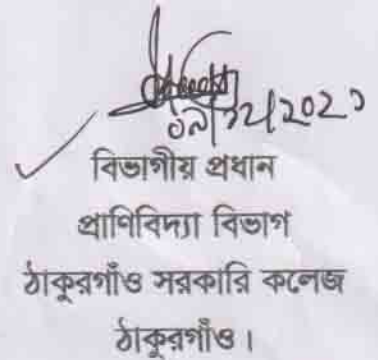 ০৯/১২/২০২১
বিভাগীয় প্রধান
প্রাণিবিদ্যা বিভাগ
ঠাকুরগাঁও সরকারি কলেজ
ঠাকুরগাঁও।